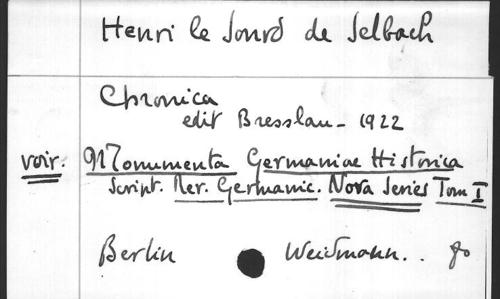 Henri le Sourd de Selbach
Chronica
edit Bresslau - 1922
voir. Monumenta Germaniae Historica
Script. Rer. Germanic. Nova Series Tom I
Berlin Weidmann. . 8o